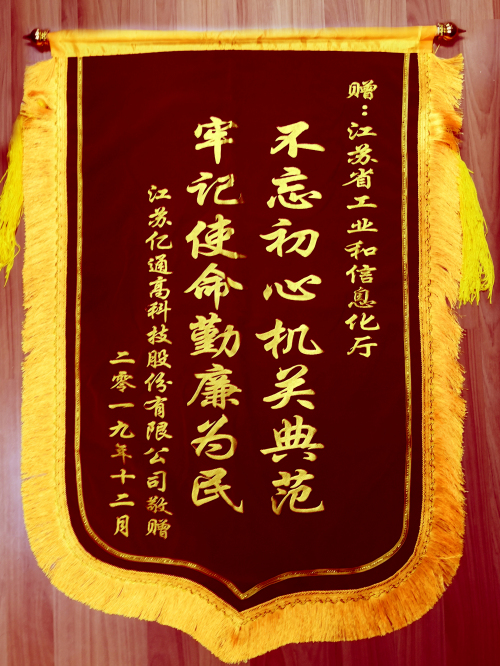 赠：江苏省工业和信息化厅
不忘初心机关典范
牢记使命勤廉为民
江苏亿通高科技股份有限公司敬赠
二零一九年十二月